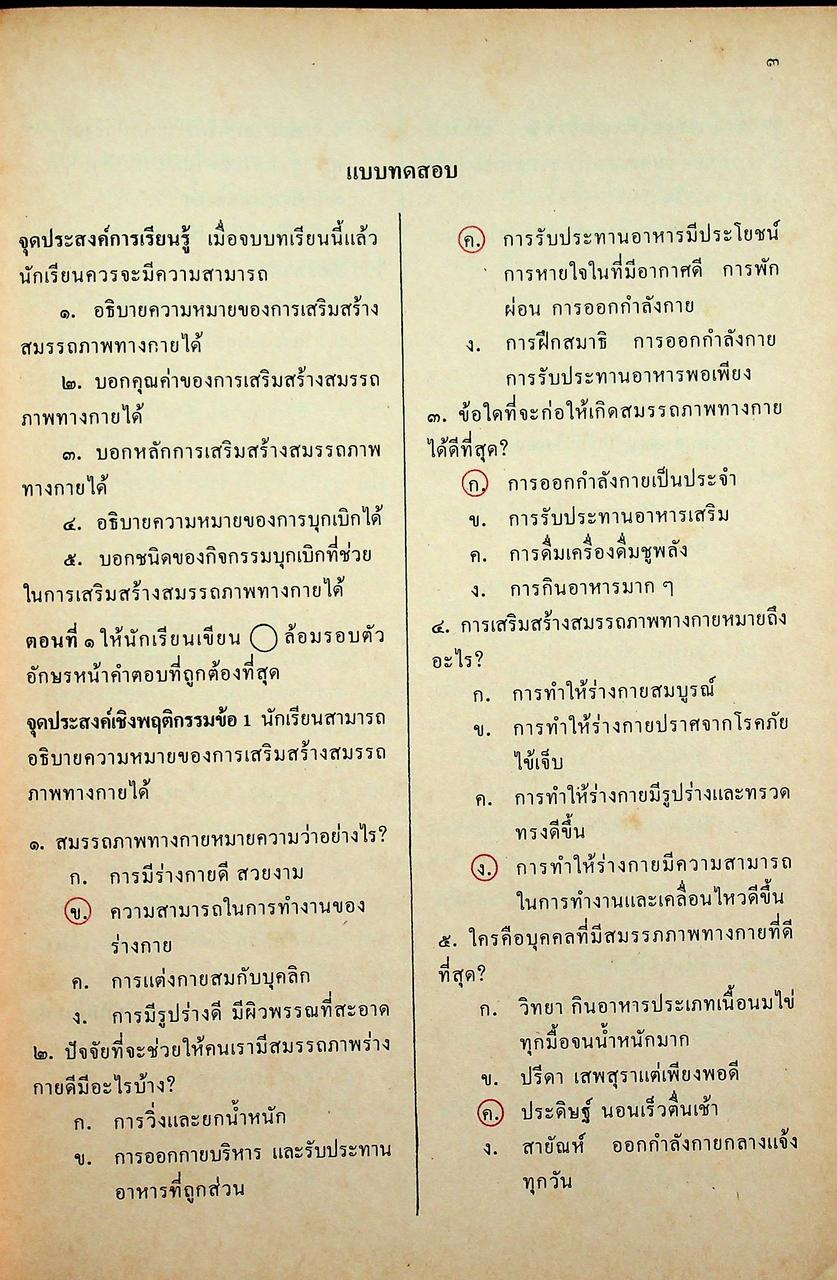 ๓
แบบทดสอบ
จุดประสงค์การเรียนรู้ เมื่อจบบทเรียนนี้แล้ว
นักเรียนควรจะมีความสามารถ
๑. อธิบายความหมายของการเสริมสร้าง
สมรรถภาพทางกายได้
๒. บอกคุณค่าของการเสริมสร้างสมรรถ
ภาพทางกายได้
๓. บอกหลักการเสริมสร้างสมรรถภาพ
ทางกายได้
๔. อธิบายความหมายของการบุกเบิกได้
๕. บอกชนิดของกิจกรรมบุกเบิกที่ช่วย
ในการเสริมสร้างสมรรถภาพทางกายได้
ตอนที่ ๑ ให้นักเรียนเขียน ◯ ล้อมรอบตัว
อักษรหน้าคำตอบที่ถูกต้องที่สุด
จุดประสงค์เชิงพฤติกรรมข้อ 1 นักเรียนสามารถ
อธิบายความหมายของการเสริมสร้างสมรรถ
ภาพทางกายได้
๑. สมรรถภาพทางกายหมายความว่าอย่างไร?
ก. การมีร่างกายดี สวยงาม
ข. ความสามารถในการทำงานของ
ร่างกาย
ค. การแต่งกายสมกับบุคลิก
ง. การมีรูปร่างดี มีผิวพรรณที่สะอาด
๒. ปัจจัยที่จะช่วยให้คนเรามีสมรรถภาพร่าง
กายดีมีอะไรบ้าง?
ก. การวิ่งและยกน้ำหนัก
ข. การออกกายบริหาร และรับประทาน
อาหารที่ถูกส่วน
ค. การรับประทานอาหารมีประโยชน์
การหายใจในที่มีอากาศดี การพัก
ผ่อน การออกกำลังกาย
ง. การฝึกสมาธิ การออกกำลังกาย
การรับประทานอาหารพอเพียง
๓. ข้อใดที่จะก่อให้เกิดสมรรถภาพทางกาย
ได้ดีที่สุด?
ก. การออกกำลังกายเป็นประจำ
ข. การรับประทานอาหารเสริม
ค. การดื่มเครื่องดื่มชูพลัง
ง. การกินอาหารมาก ๆ
๔. การเสริมสร้างสมรรถภาพทางกายหมายถึง
อะไร?
ก. การทำให้ร่างกายสมบูรณ์
ข. การทำให้ร่างกายปราศจากโรคภัย
ไข้เจ็บ
ค. การทำให้ร่างกายมีรูปร่างและทรวด
ทรงดีขึ้น
ง. การทำให้ร่างกายมีความสามารถ
ในการทำงานและเคลื่อนไหวดีขึ้น
๕. ใครคือบุคคลที่มีสมรรภภาพทางกายที่ดี
ที่สุด?
ก. วิทยา กินอาหารประเภทเนื้อนมไข่
ทุกมื้อจนน้ำหนักมาก
ข. ปรีดา เสพสุราแต่เพียงพอดี
ค. ประดิษฐ์ นอนเร็วตื่นเช้า
ง. สายัณห์ ออกกำลังกายกลางแจ้ง
ทุกวัน